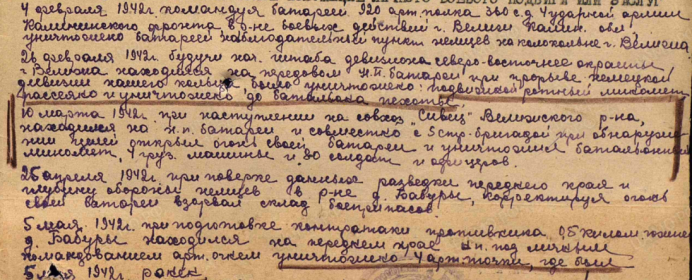 4 февраля 1942г. командуя батареей 920 арт. полка 360 с.д. 4 ударной армии
Калининского фронта в р-не боевых действий г. Велиж Калин. обл.
уничтожено батареей наблюдательный пункт немцев на колокольне г. Велижа
26 февраля 1942г. будучи нач. штаба дивизиона северо-восточнее окраины
г. Велижа находился на передовом н.п. батареи при прорыве немецкой
дивизии нашего кольца было уничтожено: подвижной ротный миномет,
рассеяно и уничтожено до батальона пехоты.
10 марта 1942г. при наступлении на совхоз "Сивец" Велижского р-на,
находился на н.п. батареи и совместно с 5 стр. бригадой при обнаруже-
нии цели открыл огонь своей батареи и уничтожил батальонный
миномет, 4 груз. машины и до солдат и офицеров.
25 апреля 1942г. при поверке данных разведки переднего края и
глубину обороны немцев в р-не д. Бабуры, корректируя огонь
своей батареи взорвал склад боеприпасов.
5 мая 1942г. при подготовке контратаки противника, южнее
д. Бабуры находился на переднем крае н.п. под личным
командованием арт. огнем уничтожено 4 арт. точки, где был
5 мая 1942г. ранен.